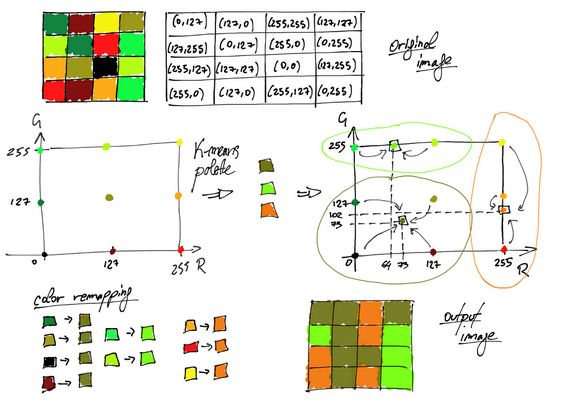 (0,127) (127,0) (255,255) (127,127)
(127,255) (0,127) (255,0) (0,255)
(255,127) (127,127) (0,0) (127,255)
(255,0) (127,0) (255,127) (0,255)
original
image
G
255
127
0
127
255 R
K-means
palete
G
255
127
102
73
0
64
73
127
255
R
color remapping
output
image